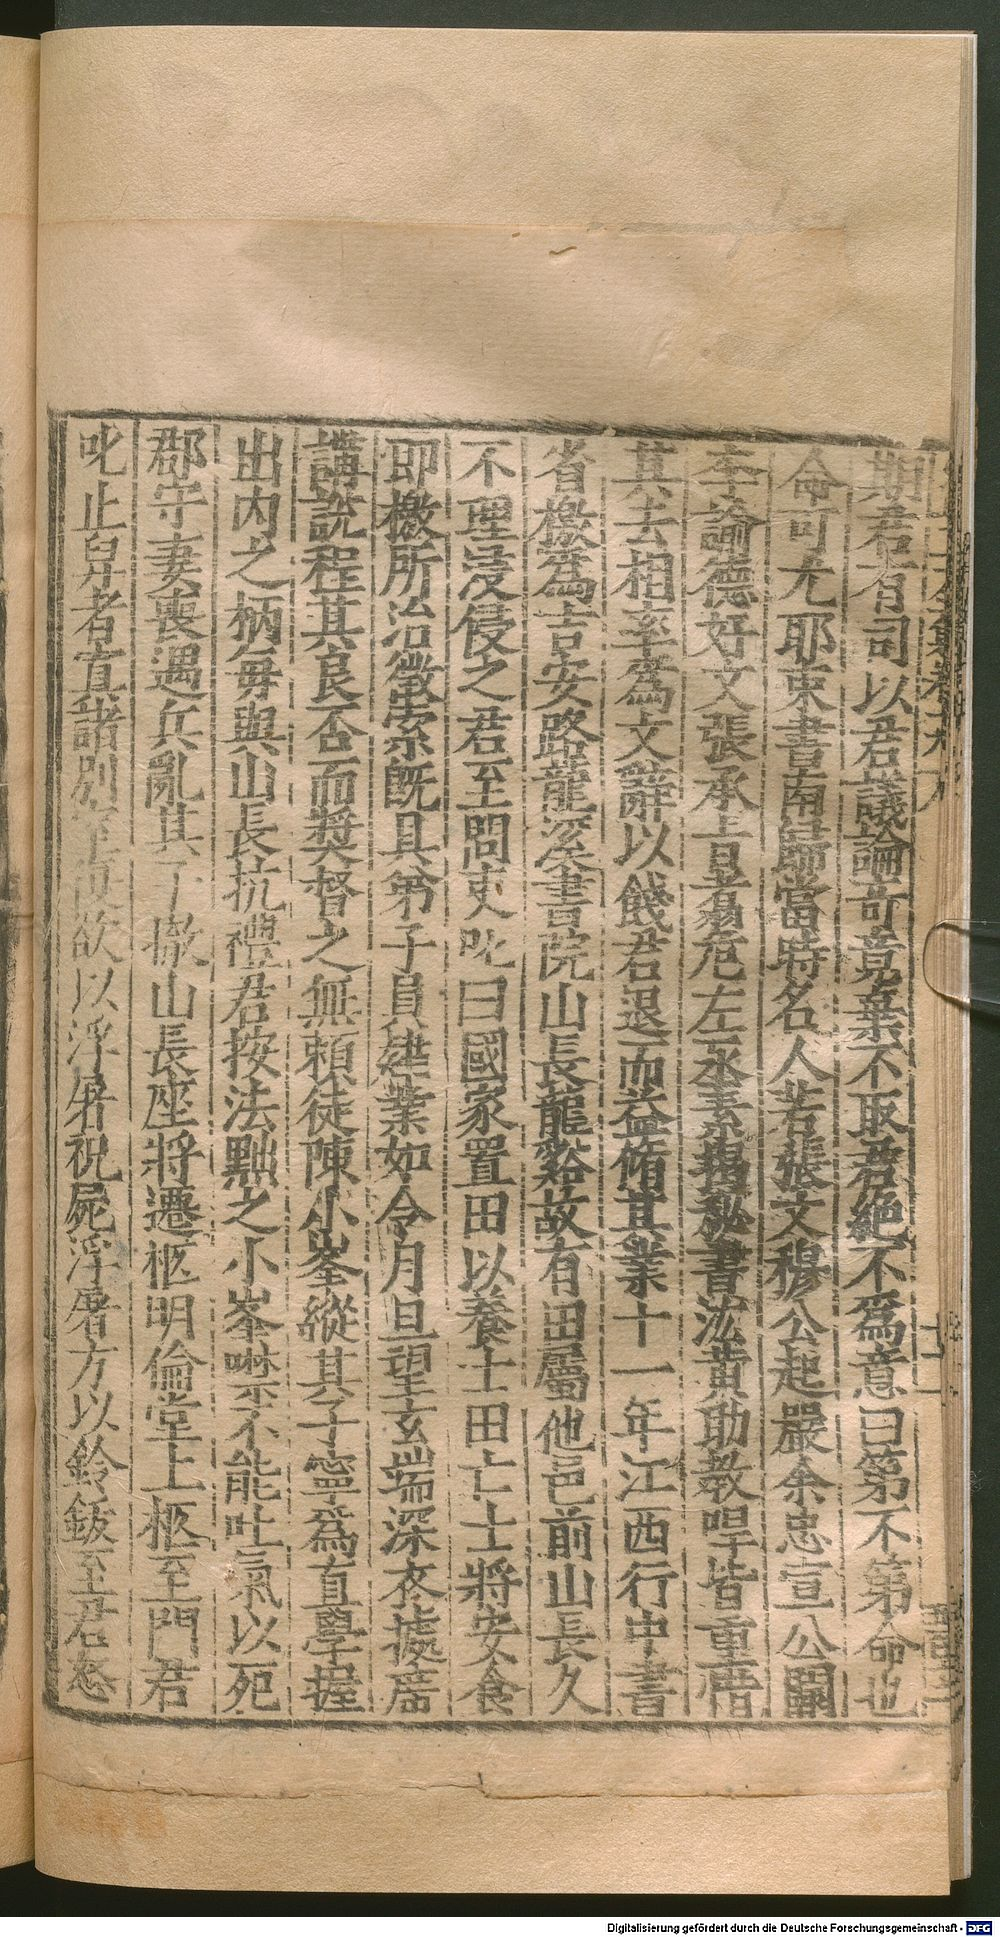 期君有司以君議論奇竟棄不取君絕不為意曰第不第命也
命可尤耶束書南歸當時名人若張文穆公起巖余忠宣公闕
李諭德好文張承旨翥危左丞素揭秘書汯黃助教㖮皆重惜
其去相率為文辭以餞君退而益脩其業十一年江西行中書
省檄為吉安路龍溪書院山長龍谿故有田屬他邑前山長久
不理浸侵之君至問吏叱曰國家置田以養士田亡士將安食
即檄所治徵索既具弟子員肄業如令月旦望玄端深衣據席
講說程其良否而奬督之無賴徒陳小峯縱其子寧為直學握
出內之柄每與山長抗禮君按法黜之小峯噤不能吐氣以死
郡守妻喪遇兵亂其子撤山長座將遷柩明倫堂上柩至門君
叱止舁者寘諸別室復欲以浮屠祝屍浮屠方以鈴鈸至君怒
Digitalisierung gefördert durch die Deutsche Forschungsgemeinschaft - DFG